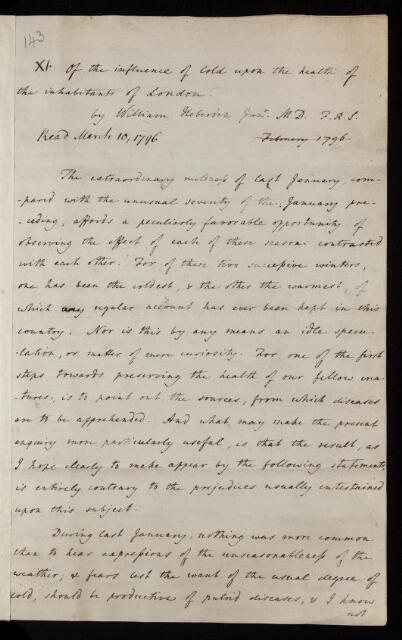 143
XI. Of the influence of Cold upon the health of
the inhabitants of London.
by William Heberden Junr. M.D. F.R.S.
Read March 10, 1796 February 1796.
The extraordinary mildness of last January, com-
-pared with the unusual severity of the January pre-
-ceding, affords a peculiarly favorable opportunity of
observing the effect of each of these seasons contrasted
with each other. For of these two successive winters,
one has been the coldest, & the other the warmest, of
which any regular account has ever been kept in this
country. Nor is this by any means an idle specu-
-lation, or matter of mere curiosity. For one of the first
steps towards preserving the health of our fellow crea-
-tures, is to point out the sources, from which diseases
are to be apprehended. And what may make the present
enquiry more particularly useful, is that the result, as
I hope clearly to make appear by the following statements,
is entirely contrary to the prejudices usually entertained
upon this subject.
During last January, nothing was more common
than to hear expressions of the unseasonableness of the
weather; & fears lest the want of the usual degree of
cold, should be productive of putrid diseases, & I know
not